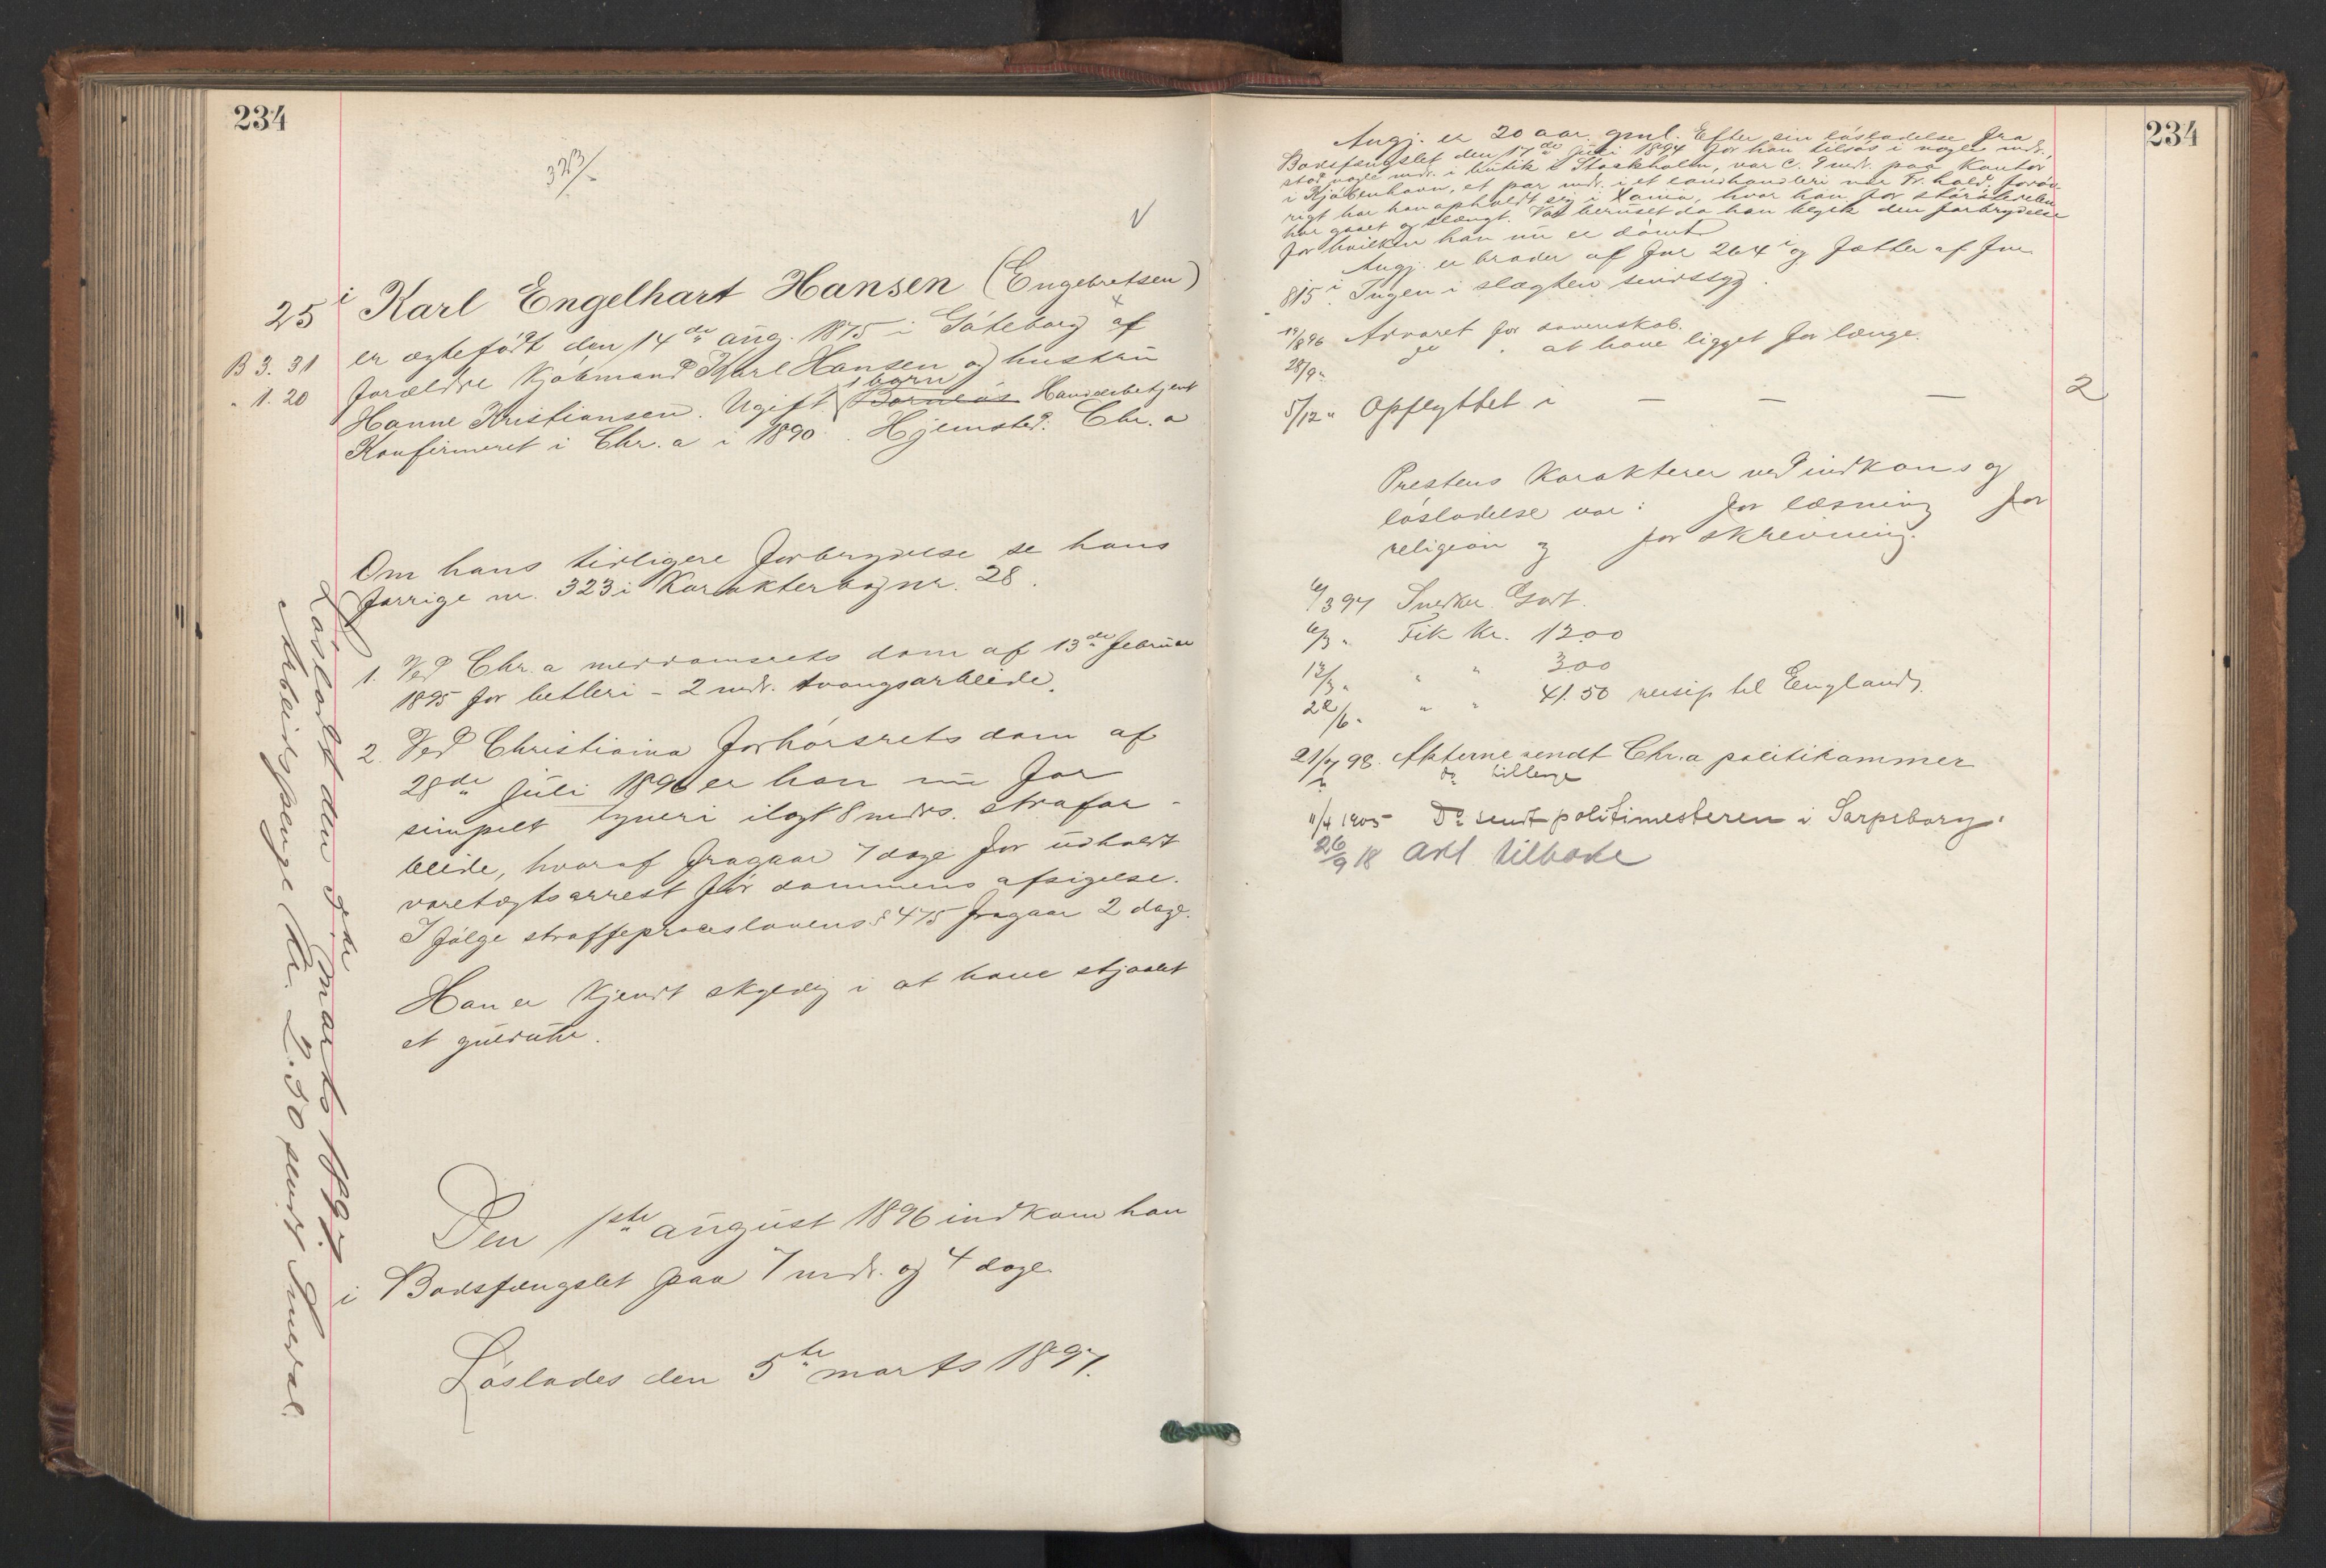 234
323/
V
25 i Karl Engelhart Hansen (Engebretsen)
er ægtefödt den 14de aug. 1875 i Göteborg af
B 3. 31
forældre Kjöbmand Karl Hansen og hustru
" 1. 20
1 barn
Hanne Kristiansen. Ugift. Barnlös Handelsbetjent
Konfirmeret i Chr.a i 1890. Hjemsted: Chr.a
Om hans tidligere forbrydelse se hans
forrige nr. 323 i Karakterbog nr. 28.
1. Ved Chr.a meddomsrets dom af 13de februar
1895 for betleri - 2 mdr. tvangsarbeide.
2. Ved Christiania forhörsrets dom af
28de juli 1896 er han nu for
simpelt tyveri ilagt 8 mdrs. strafar-
beide, hvoraf fragaar 7 dage for udholdt
varetægtsarrest för dommens afsigelse.
I fölge straffeproceslovens § 475 fragaar 2 dage.
Han er kjendt skyldig i at have stjaalet
et guldur.
Den 1ste august 1896 indkom han
i Bodsfængslet paa 7 mdr. og 4 dage
Löslades den 5te marts 1897.
Lösladt den 5te marts 1897.
Arbeidspenge Kr. 2.50 sendt
234
Angj. er 20 aar gml. Efter sin lösladelse fra
Bodsfængslet den 17de juli 1894 for han tilsös i nogle mdr.,
stod nogle mdr. i butik i Stockholm, var c. 9 mdr. paa Kontor
i Kjöbenhavn, et par mdr. i et landhandleri ved Fr.hald. foröv-
rigt har han opholdt sig i Xania, hvor han for störstedelen
har gaaet og slængt. Var beruset da han begik den forbrydelse
for hvilken han nu er dömt
Angj. er broder af fne 264 i og fætter af fne
815 i. Ingen i slægten sindssyg.
19/8 96 Advaret for dovenskab.
28/9 " do " at have ligget for længe.
5/12 " Opflyttet i — — — 2
Prestens Karakterer ved indkomst og
lösladelse var: for læsning for
religion og for skrivning.
6/3 97 Snedker. Godt.
6/3 " Fik Kr. 12.00
13/3 " " " 3.00
22/6 " " " 41.50 reisep. til England.
21/7 98. Akterne sendt Chr.a politikammer
do tilbage
11/4 1905 Do sendt politimesteren i Sarpsborg.
26/9 18 Akt tilbake